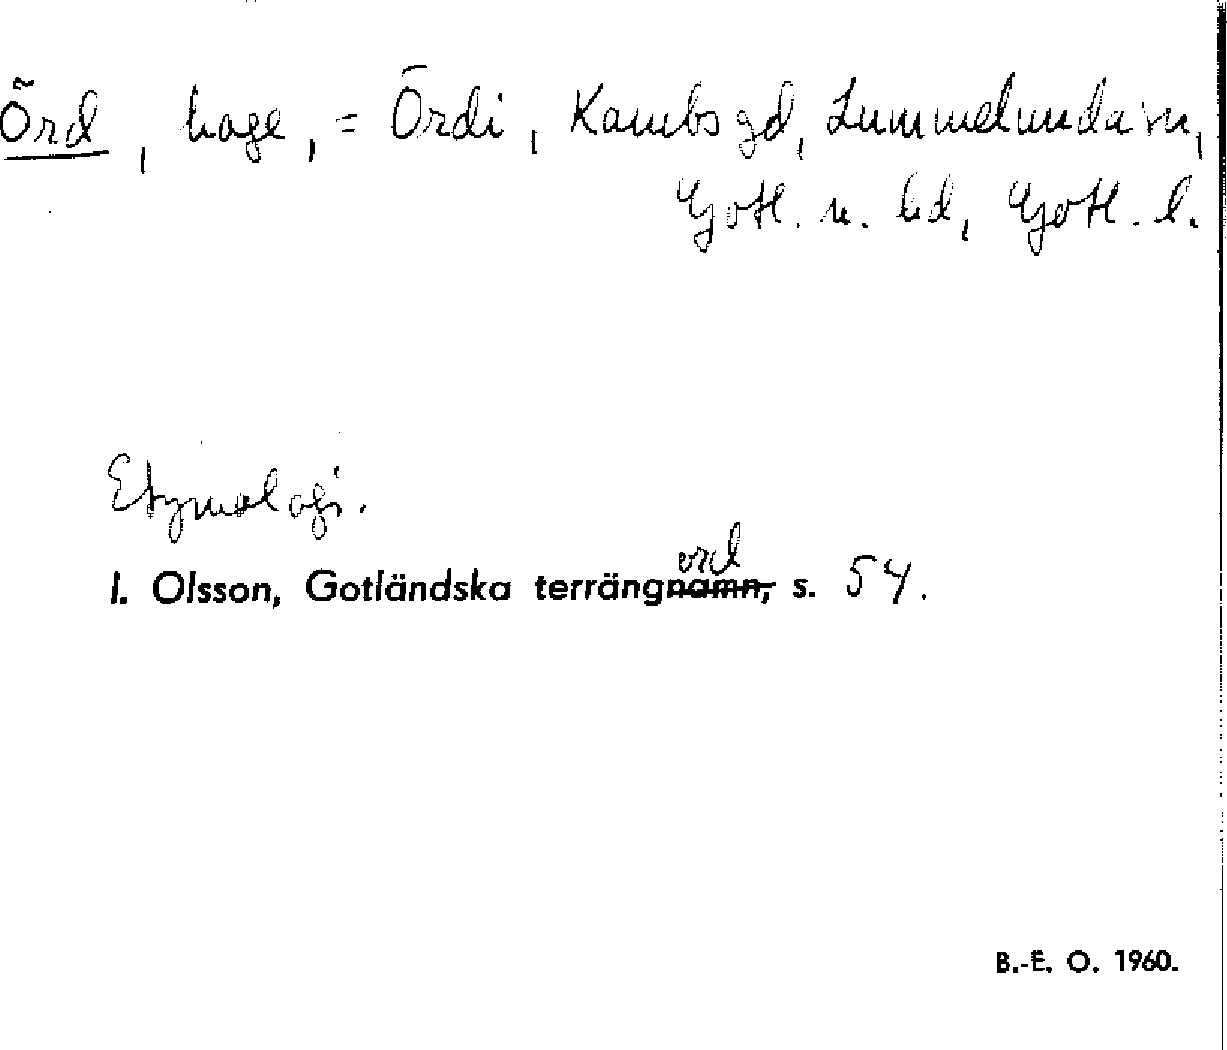 Örd, hage, = Ōrdi, Kambs gd, Lummelunda sn,
Gotl. n. hd, Gotl. l.
Etymologi.
ord
I. Olsson, Gotländska terrängnamn, s. 54.
B.-E. O. 1960.